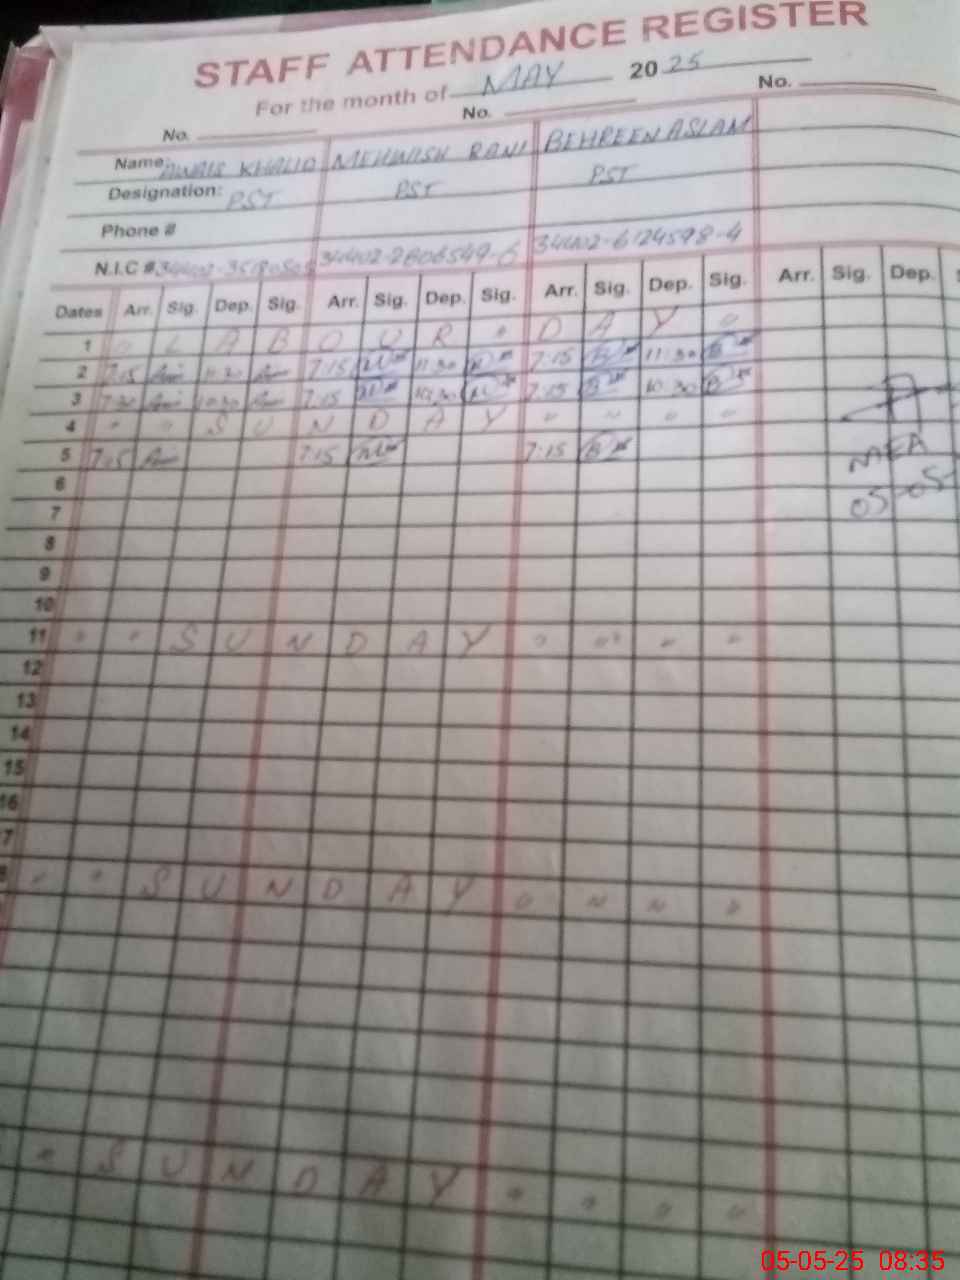 STAFF ATTENDANCE REGISTER
For the month of MAY 2025
No. No. No.
Name: AWAIS KHALID MEHWISH RANI BEHREEN ASLAM
Designation: PST PST PST
Phone #
N.I.C # 34402-2806549-6 34402-6124598-4
Dates Arr. Sig. Dep. Sig. Arr. Sig. Dep. Sig. Arr. Sig. Dep. Sig. Arr. Sig. Dep. S
1 " L A B O U R " D A Y "
2 7:15 11:30 7:15 11:30 7:15 11:30
3 7:30 10:30 7:15 10:30 7:15 10:30
4 " " S U N D A Y " " " "
5 7:15 7:15 7:15
MEA
05-05-
6
7
8
9
10
11 " " S U N D A Y " " " "
12
13
14
15
16
7
8 " " S U N D A Y " " " "
" S U N D A Y " " " "
05-05-25 08:35